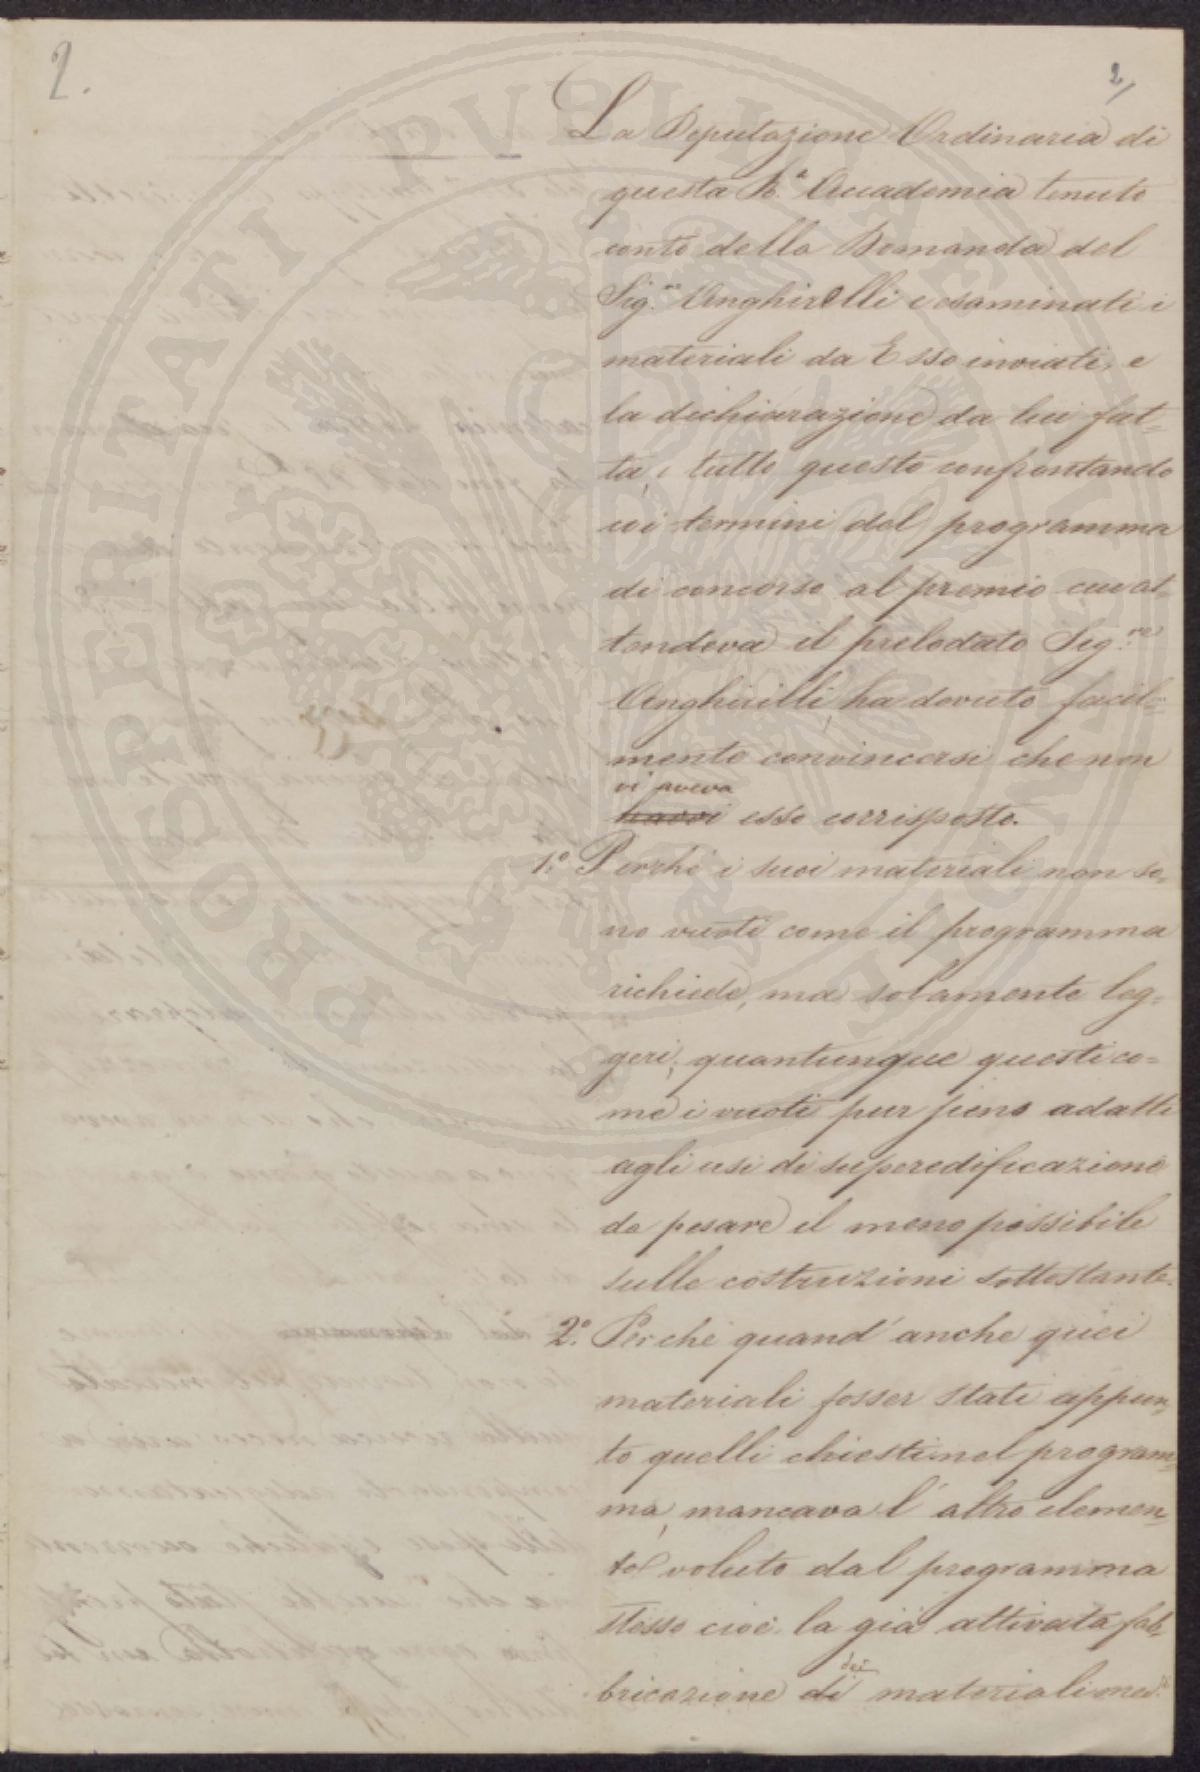 2.
2/
La Deputazione Ordinaria di
questa R.a Accademia tenuto
conto della Domanda del
Sig.re Anghirelli e esaminati i
materiali da Esso inviati, e
la dichiarazione da lui fat-
ta, e tutto questo confrontando
coi termini del programma
di concorso al premio cui at-
tendeva il prelodato Sig.re
Anghirilli, ha dovuto facil-
mente convincersi che non
vi aveva
havvi esso corrisposto.
1.o Perché i suoi materiali non so-
no vuoti come il programma
richiede, ma solamente leg-
geri, quantunque questi co-
me i vuoti pur sieno adatti
agli usi di superedificazione
da pesare il meno possibile
sulle costruzioni sottostanti.
2.o Perché quand'anche quei
materiali fosser stati appun-
to quelli chiesti nel program-
ma, mancava l'altro elemen-
to voluto dal programma
stesso cioè la già attivata fab-
dei
bricazione di materiali med.i
PROSPERITATI PVBLICAE AVGENDAE